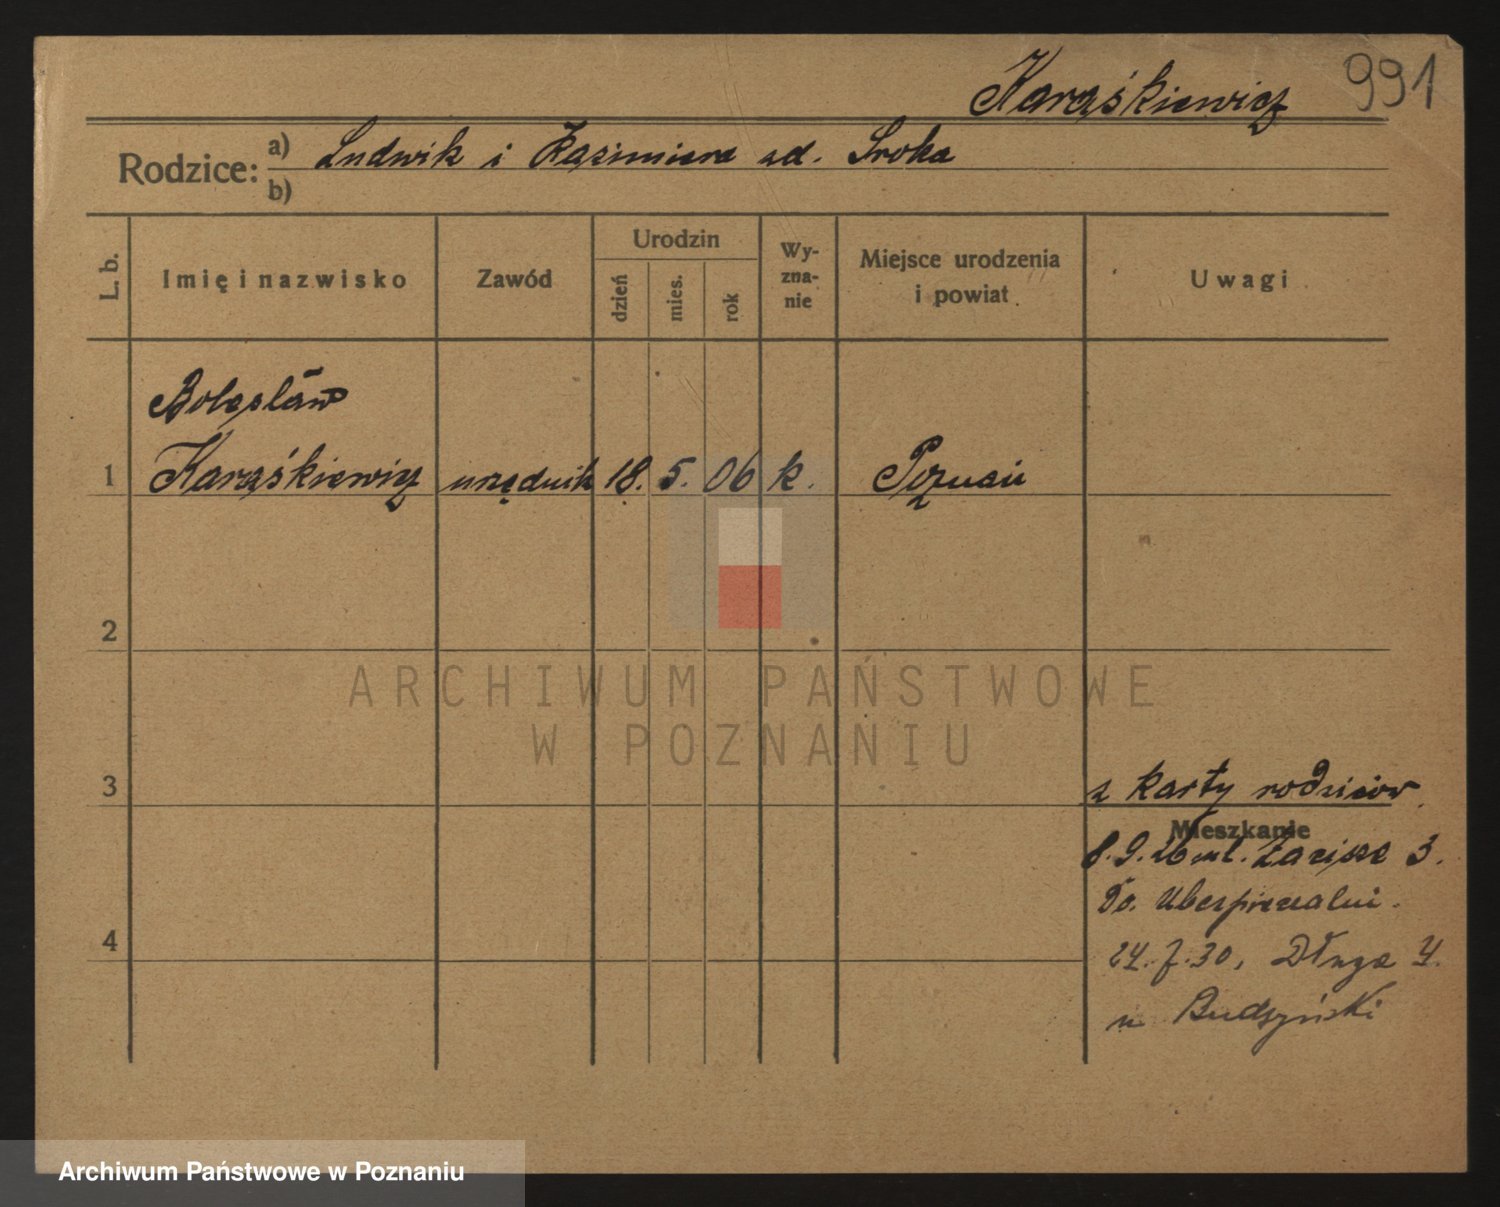 Karaśkiewicz 991
Rodzice: a) Ludwik i Kazimiera zd. Sroka
b)
L. b. Imię i nazwisko Zawód Urodzin dzień mies. rok Wy-zna-nie Miejsce urodzenia i powiat Uwagi
Bolesław
1 Karaśkiewicz urzędnik 18. 5. 06 k. Poznań
2
ARCHIWUM PAŃSTWOWE
W POZNANIU
3 z karty rodziców
Mieszkanie
8. 9. 26 Zacisze 3.
Do. Ubezpieczalni.
4
24. 7. 30, Długa 4.
u Budzyński
Archiwum Państwowe w Poznaniu